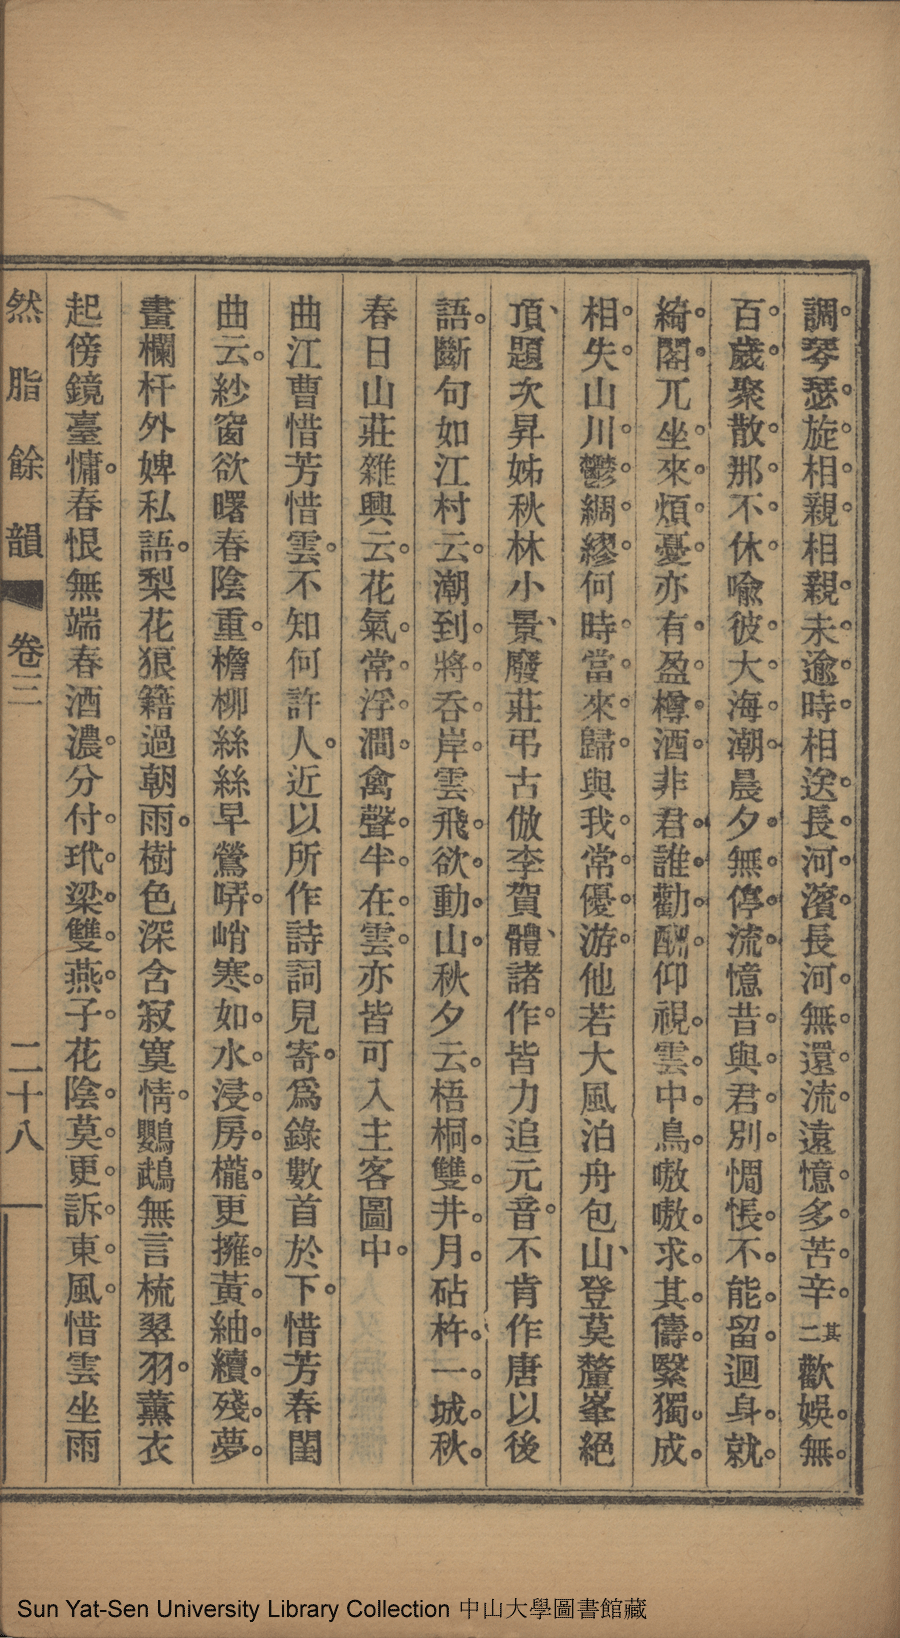 調琴瑟旋相親相親未逾時相送長河濱長河無還流遠憶多苦辛其二歡娛無
百歲聚散那不休喻彼大海潮晨夕無停流憶昔與君別惆悵不能留迴身就
綺閣兀坐來煩憂亦有盈樽酒非君誰勸酬仰視雲中鳥嗷嗷求其儔緊獨成
相失山川鬱綢繆何時當來歸與我常優游他若大風泊舟包山登莫釐峯絕
頂題次昇姊秋林小景廢莊弔古倣李賀體諸作皆力追元音不肯作唐以後
語斷句如江村云潮到將吞岸雲飛欲動山秋夕云梧桐雙井月砧杵一城秋
春日山莊雜興云花氣常浮澗禽聲半在雲亦皆可入主客圖中
曲江曹惜芳惜雲不知何許人近以所作詩詞見寄爲錄數首於下惜芳春閨
曲云紗窗欲曙春陰重檐柳絲絲早鶯哢峭寒如水浸房櫳更擁黃紬續殘夢
畫欄杆外婢私語梨花狼籍過朝雨樹色深含寂寞情鸚鵡無言梳翠羽薰衣
起傍鏡臺慵春恨無端春酒濃分付玳梁雙燕子花陰莫更訴東風惜雲坐雨
然脂餘韻 卷三 二十八
Sun Yat-Sen University Library Collection 中山大學圖書館藏